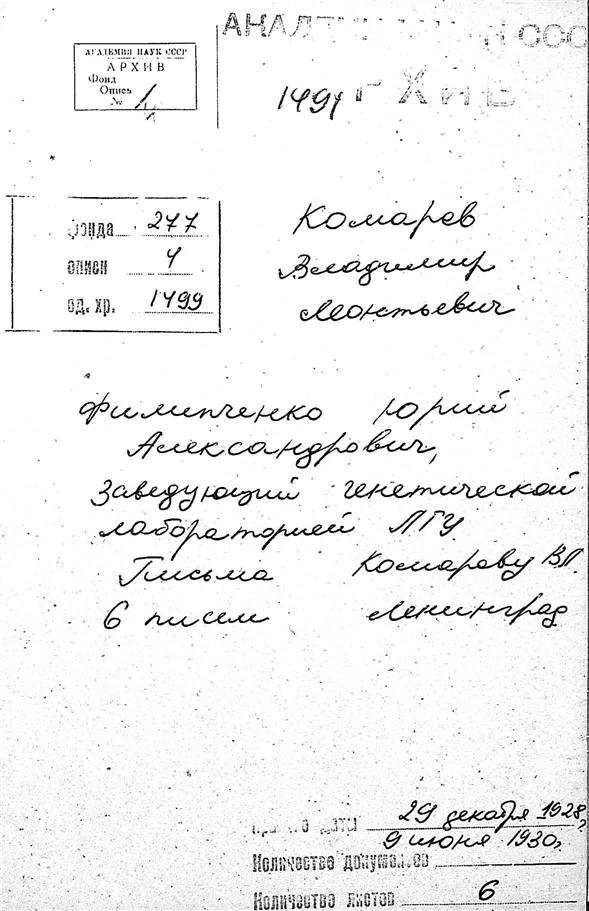 АКАДЕМИЯ НАУК СССР
АРХИВ
Фонд
Опись
№
1491
фонда 277
описи 4
ед. хр. 1499
Комаров
Владимир
Леонтьевич
Филипченко Юрий
Александрович,
Заведующий генетической
лабораторией ЛГУ
Письма Комарову В.Л.
6 писем Ленинград
29 декабря 1928,
9 июня 1930,
Количество документов
Количество листов 6